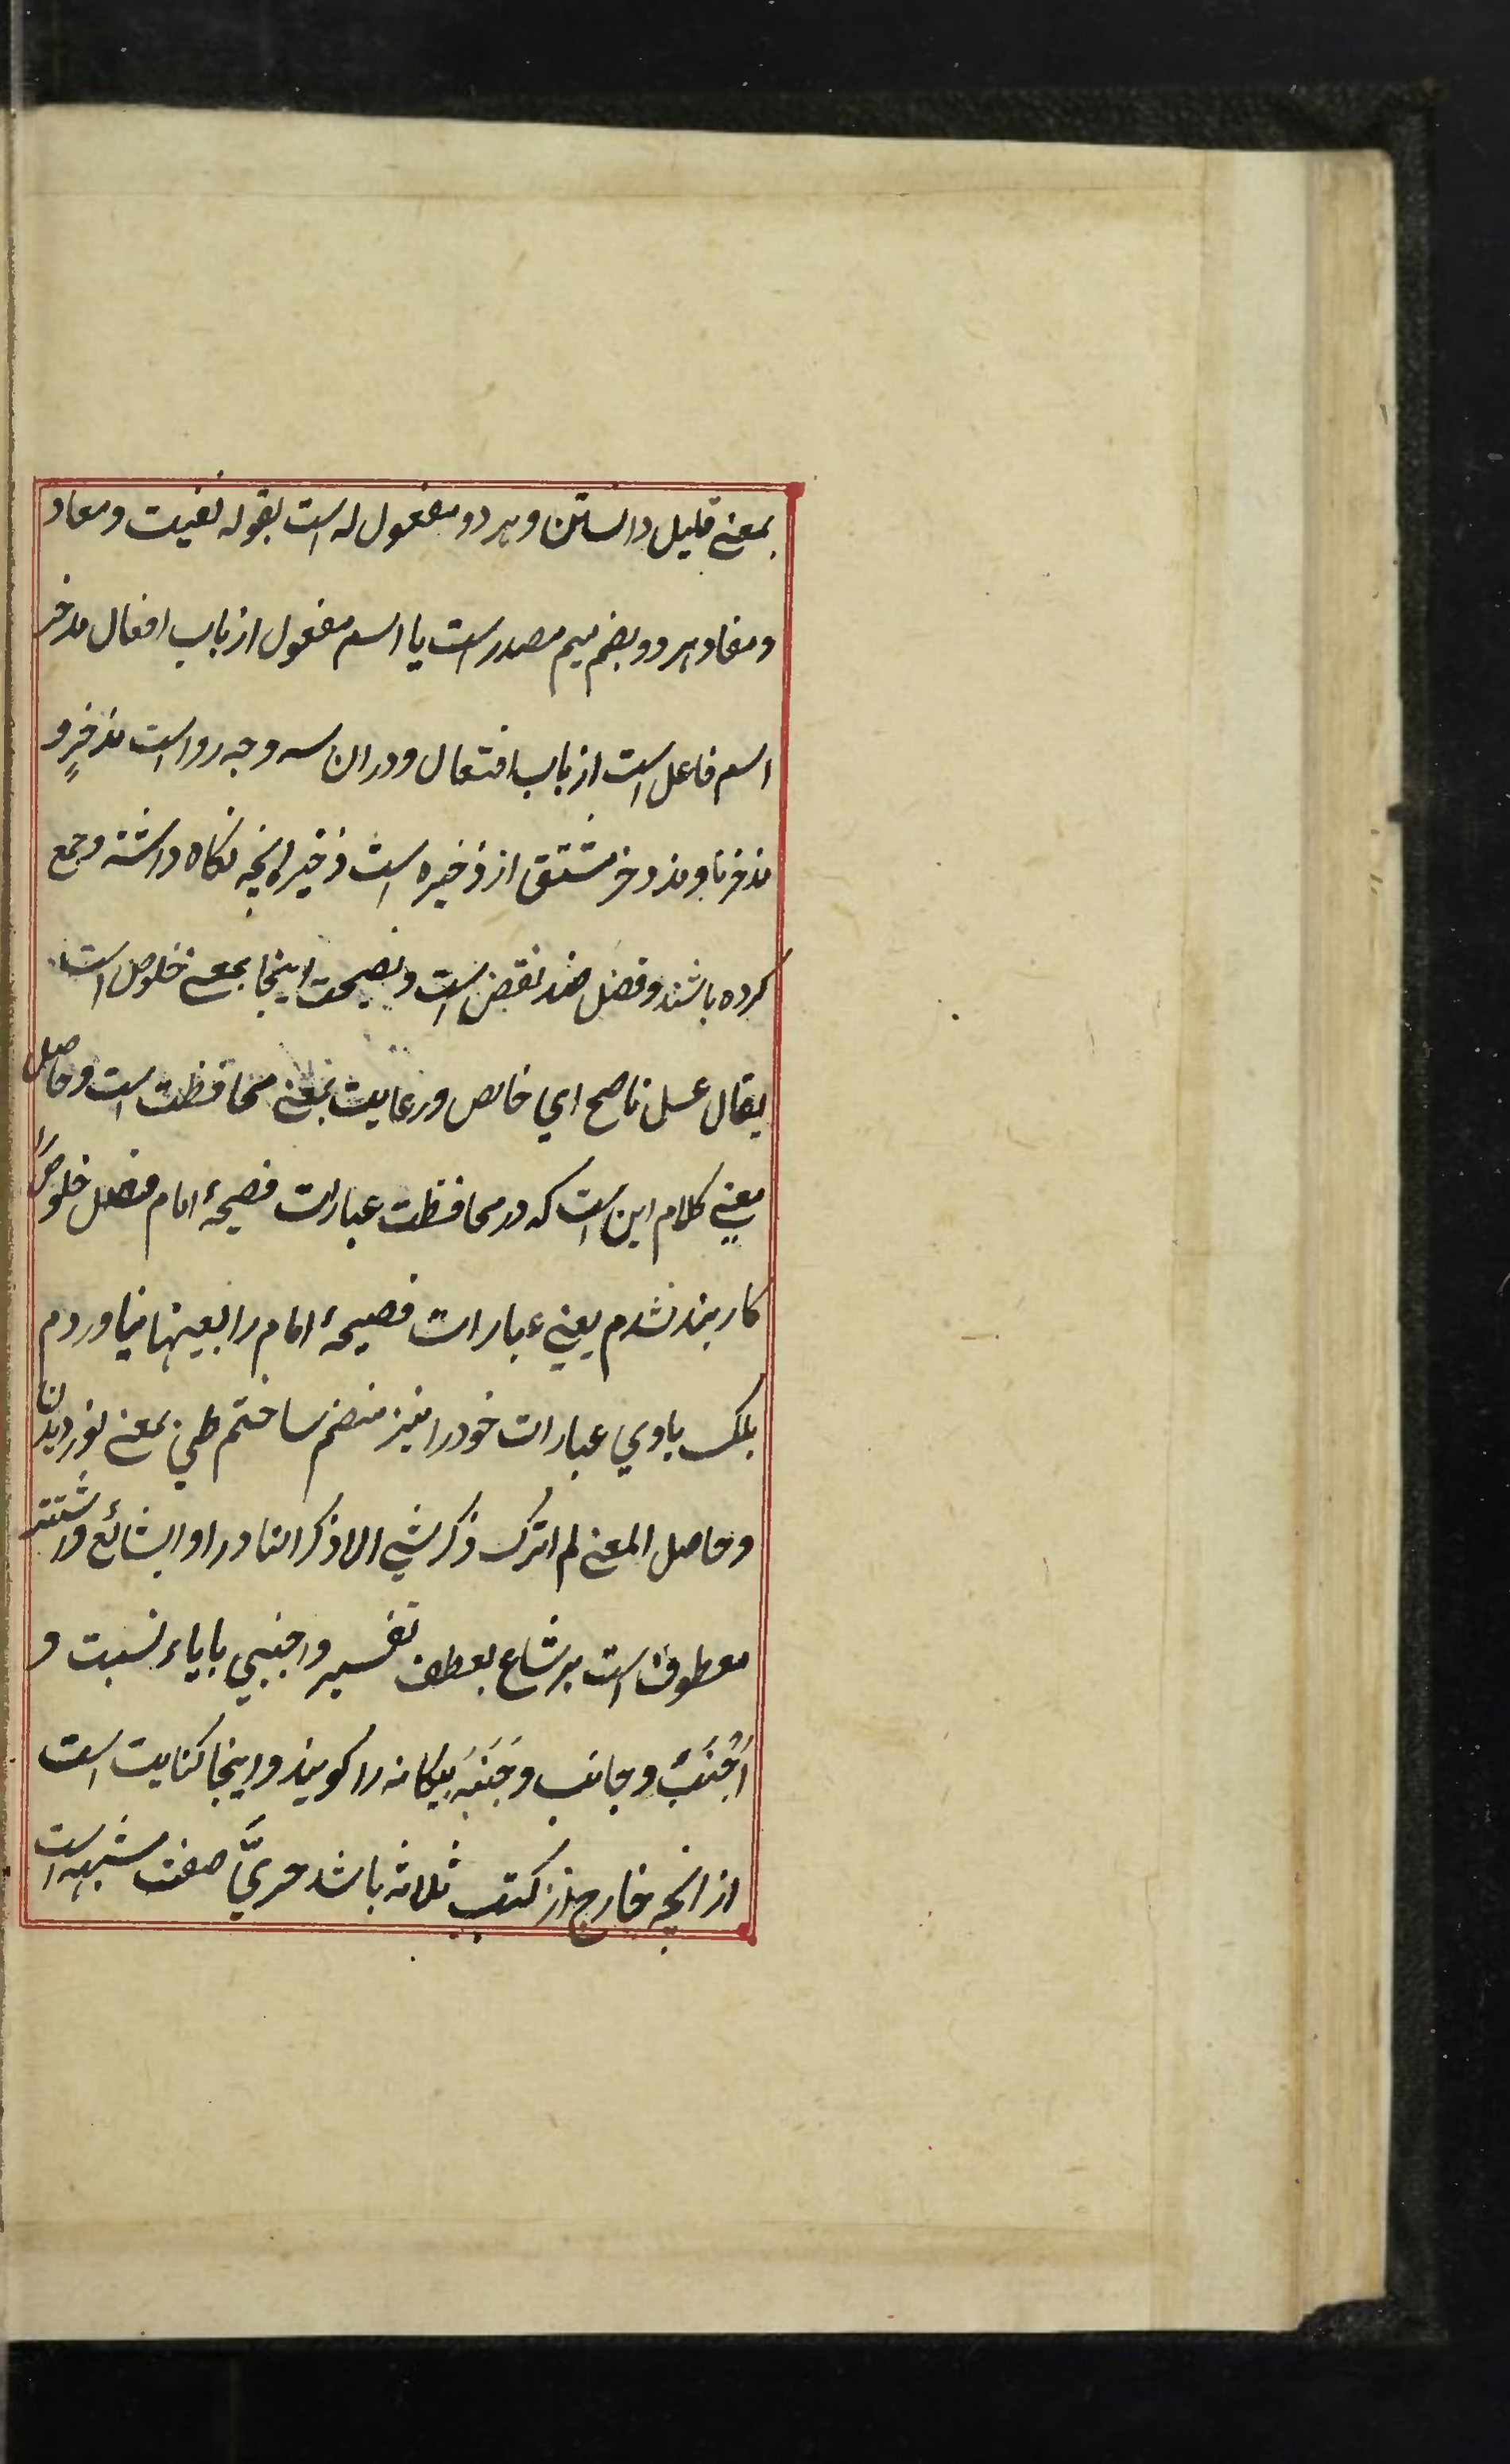 بمعنے قلیل دانستن و هر دو مفعول له است بقوله نفیت و معاد
و مفاد هر دو بضم میم مصدر است یا اسم مفعول از باب افعال مدخر
اسم فاعل است از باب افتعال و در ان سه وجه روا است مذخرٍ و
مدخر نا و مذدخر مشتق از ذخیره است ذخیره انچه نکاه داشته و جمع
کرده باشند و فضل ضد نقص است و نصیحت اینجا بمعنے خلوص است
یقال عسل ناصح اي خالص و رعایت بمعنے محافظت است و حاصل
معنے کلام این است که در محافظت عبارات فصیحهٔ امام فضل خلوص را
کاربند نشدم یعنے عبارات فصیحهٔ امام را بعینها نیاوردم
بلکه باوي عبارات خود را نیز منضم ساختم طي بمعنے نوردیدن
و حاصل المعنے لم اترک ذکر شي الا ذکر النادر او الشائع و اشتهر
معطوف است بر شاع بعطف تفسیر و اجنبي با یاء نسبت و
اَجْنَبُ و جانب و جَنَبَه بیکانه را کویند و اینجا کنایت است
از انچه خارج از کتب ثلاثه باشد حريَّ صفت مشبهه است